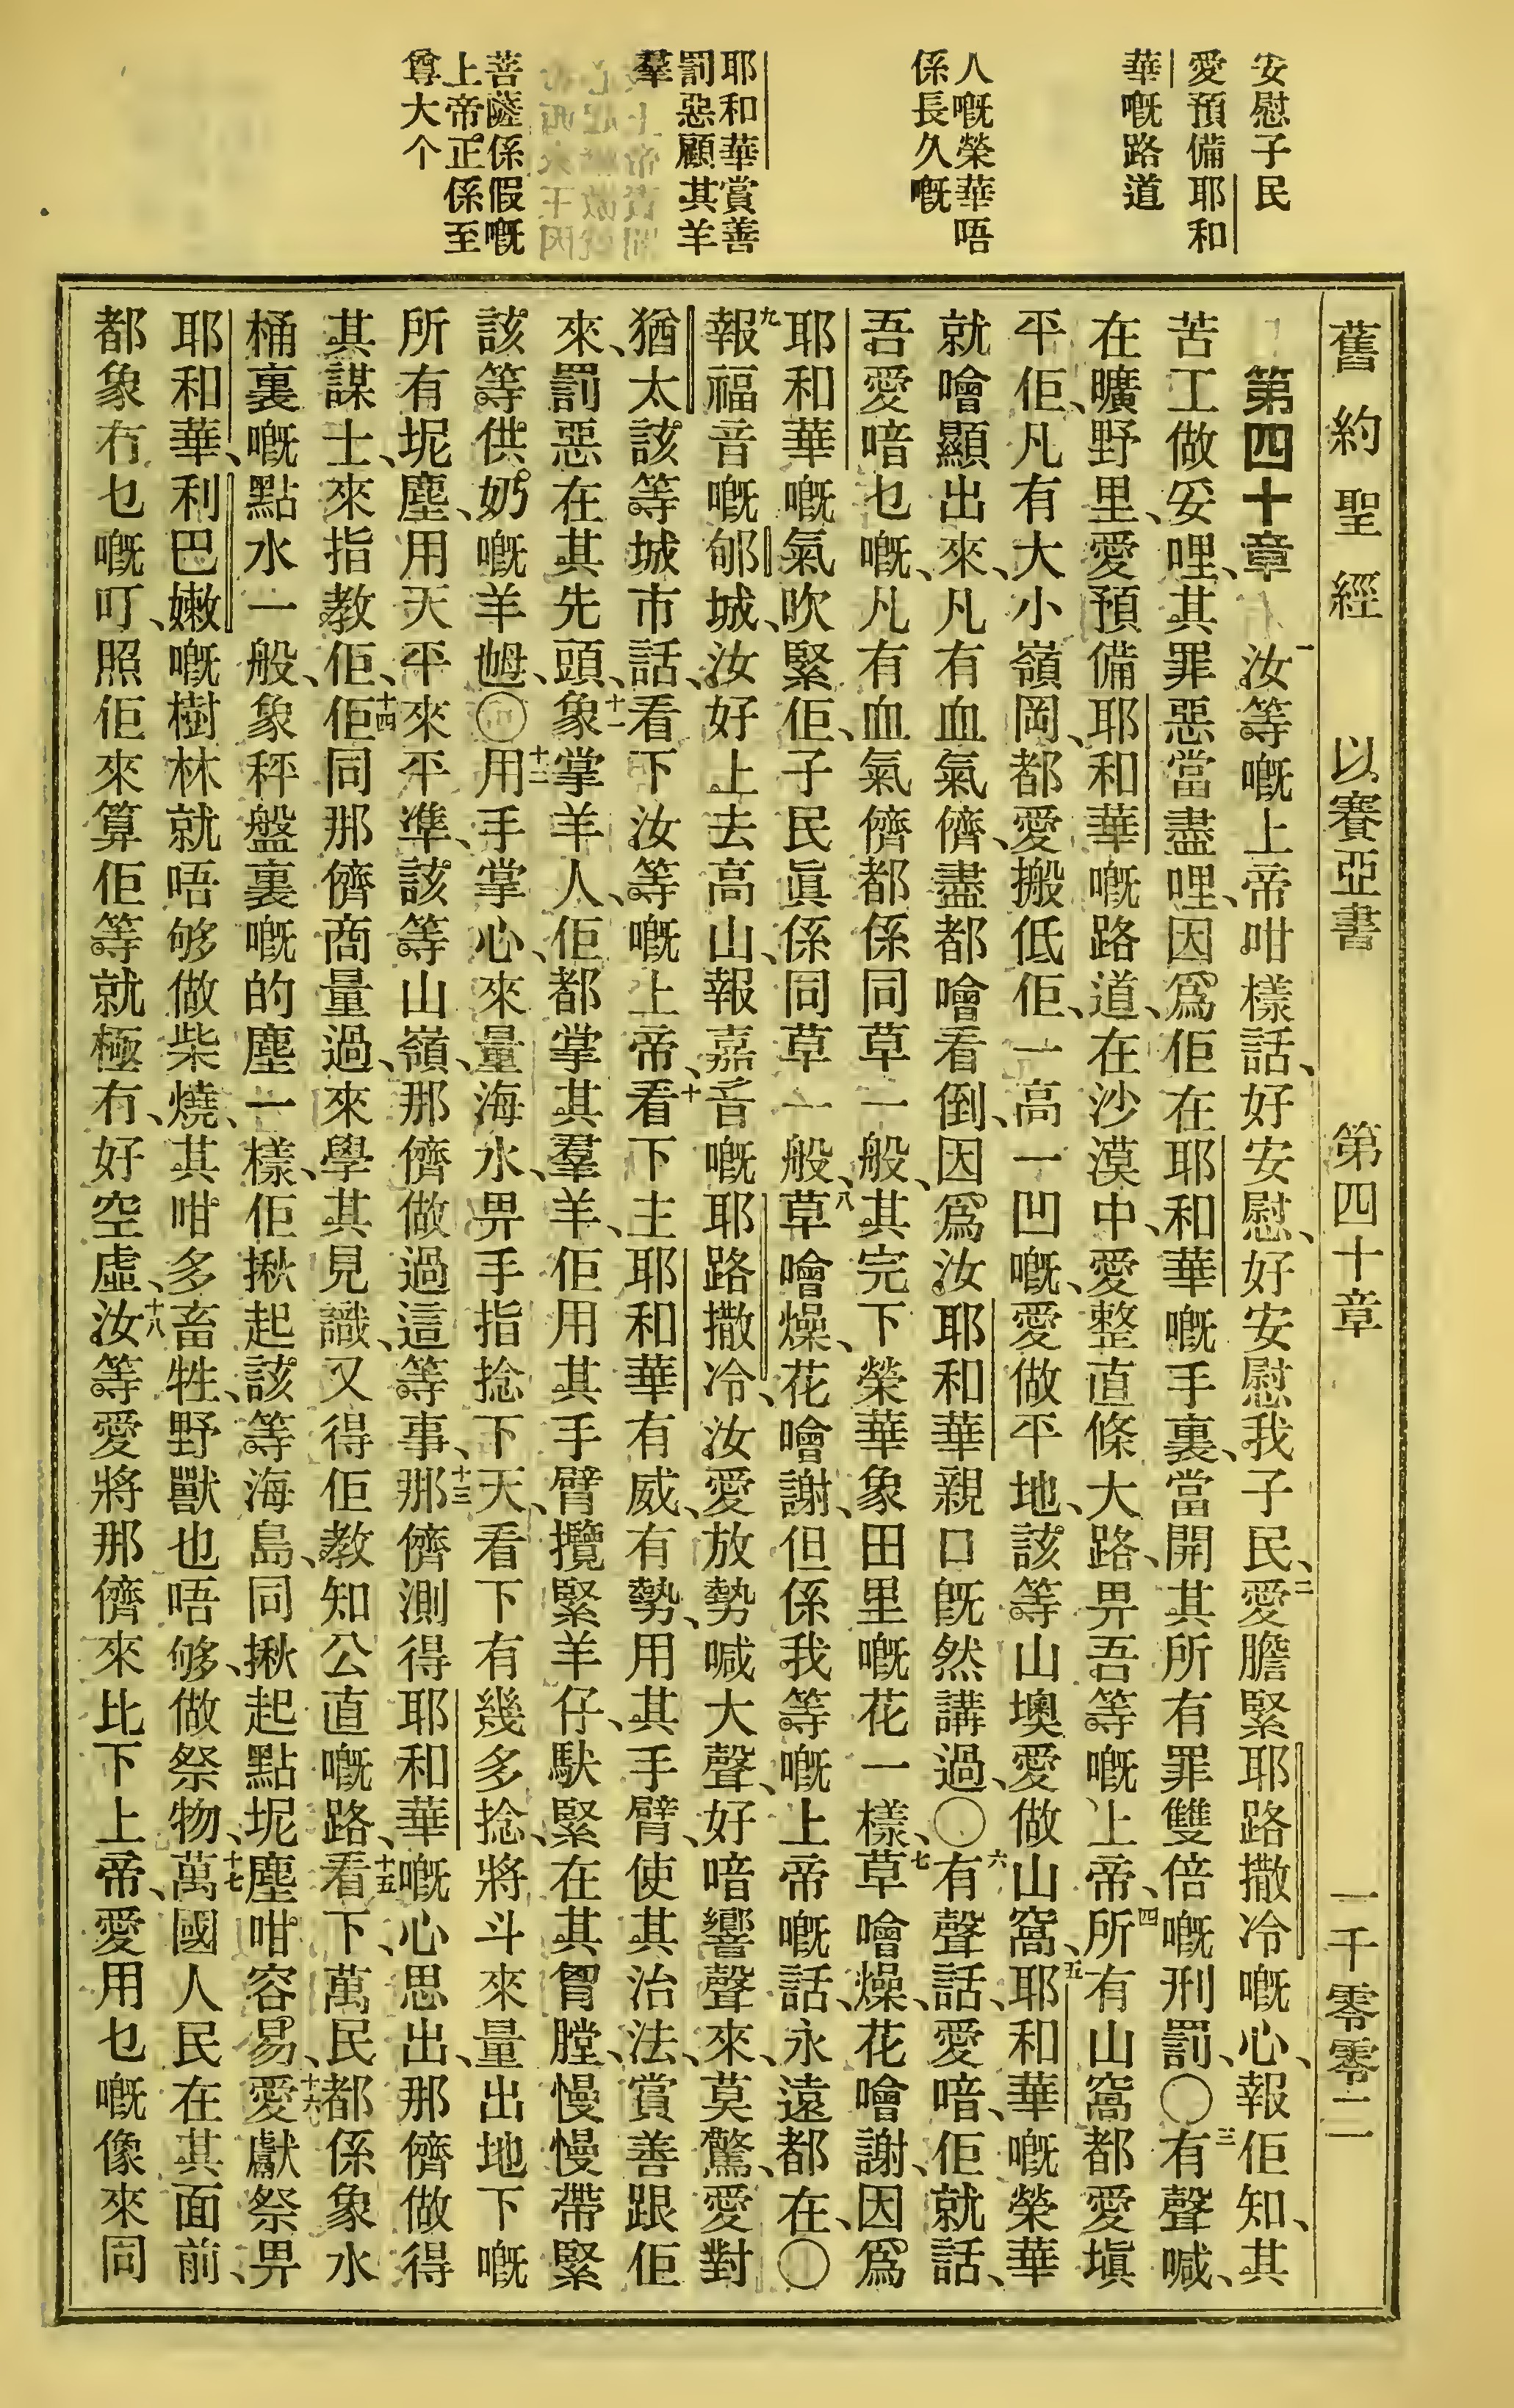 安慰子民
愛預備耶和
華嘅路道
人嘅榮華唔
係長久嘅
耶和華賞善
罰惡顧其羊
羣
菩薩係假嘅
上帝正係至
尊大个
舊約聖經 以賽亞書 第四十章 一千零零二
第四十章 一汝等嘅上帝咁樣話、好安慰、好安慰我子民、二愛膽緊耶路撒冷嘅心、報佢知、其
苦工做妥哩、其罪惡當盡哩、因爲佢在耶和華嘅手裏、當開其所有罪雙倍嘅刑罰、〇三有聲喊、
在曠野里、愛預備耶和華嘅路道、在沙漠中、愛整直條大路、畀吾等嘅上帝、四所有山窩都愛塡
平佢、凡有大小嶺岡、都愛搬低佢、一高一凹嘅、愛做平地、該等山墺愛做山窩、五耶和華嘅榮華
就噲顯出來、凡有血氣儕、盡都噲看倒、因爲汝耶和華親口旣然講過、〇六有聲話、愛喑、佢就話、
吾愛喑乜嘅、凡有血氣儕都係同草一般、其完下榮華象田里嘅花一樣、七草噲燥、花噲謝、因爲
耶和華嘅氣吹緊佢、子民眞係同草一般、八草噲燥、花噲謝、但係我等嘅上帝嘅話、永遠都在、〇
九報福音嘅郇城、汝好上去高山、報嘉音嘅耶路撒冷、汝愛放勢喊大聲、好喑響聲來、莫驚、愛對
猶太該等城市話、看下汝等嘅上帝、十看下主耶和華有威、有勢、用其手臂、使其治法、賞善跟佢
來、罰惡在其先頭、十一象掌羊人、佢都掌其羣羊、佢用其手臂攬緊羊仔、馱緊在其胷膛、慢慢帶緊
該等供奶嘅羊𡜵、〇十二用手掌心來量海水、畀手指捻下天、看下有幾多捻、將斗來量出地下嘅
所有坭塵、用天平來平準、該等山嶺、那儕做過這等事、十三那儕測得耶和華嘅心思出、那儕做得
其謀士、來指教佢、十四佢同那儕商量過、來學其見識、又得佢教知公直嘅路、十五看下、萬民都係象水
桶裏嘅點水一般、象秤盤裏嘅的塵一樣、佢揪起該等海島、同揪起點坭塵咁容易、十六愛獻祭畀
耶和華、利巴嫩嘅樹林就唔够做柴燒、其咁多畜牲、野獸也唔够、做祭物、十七萬國人民在其面前、
都象冇乜嘅叮、照佢來算佢等就極冇、好空虛、十八汝等愛將那儕來比下上帝、愛用乜嘅像來同